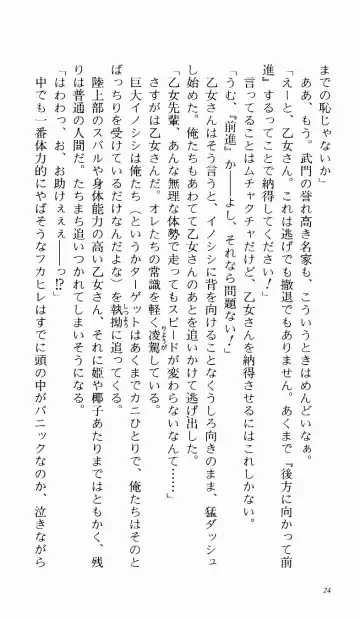 までの恥じゃないか」
　ああ、もう。武門の誉れ高き名家も、こういうときはめんどいなぁ。
「えーと、乙女さん。これは逃げでも撤退でもありません。あくまで『後方に向かって前
進』するってことで納得してください！」
　言ってることはムチャクチャだけど、乙女さんを納得させるにはこれしかない。
「うむ、『前進』か――よし、それなら問題ない！」
　乙女さんはそう言うと、イノシシに背を向けることなくうしろ向きのまま、猛ダッシュ
し始めた。俺たちもあわてて乙女さんのあとを追いかけて逃げ出した。
「乙女先輩、あんな無理な体勢で走ってもスピードが変わらないなんて……」
　さすがは乙女さんだ。オレたちの常識を軽く凌駕している。
りょうが
　巨大イノシシは俺たち（というかターゲットはあくまでカニひとりで、俺たちはそのと
ばっちりを受けているだけなんだよな）を執拗に追ってくる。
しつよう
　陸上部のスバルや身体能力の高い乙女さん、それに姫や椰子あたりまではともかく、残
りは普通の人間だ。たちまち追いつかれてしまいそうになる。
「はわわっ、お、お助けぇぇぇ――っ!?」
　中でも一番体力的にやばそうなフカヒレはすでに頭の中がパニックなのか、泣きながら
24